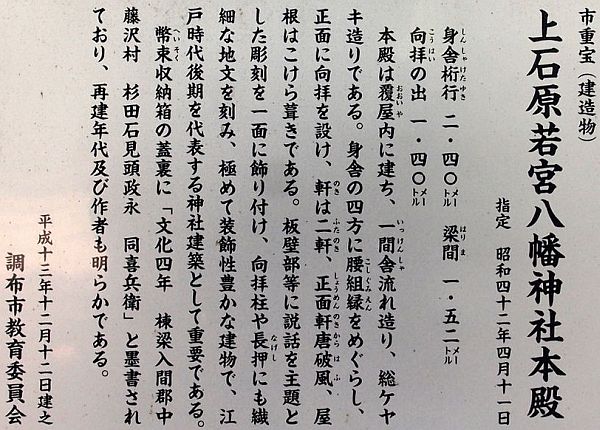 市重宝（建造物）
上石原若宮八幡神社本殿
指定　昭和四十二年四月十一日
身舎桁行　二・四〇メートル　梁間　一・五二メートル
向拝の出　一・四〇メートル
本殿は覆屋内に建ち、一間舎流れ造り、総ケヤ
キ造りである。身舎の四方に腰組縁をめぐらし、
正面に向拝を設け、軒は二軒、正面軒唐破風、屋
根はこけら葺きである。板壁部等に説話を主題と
した彫刻を一面に飾り付け、向拝柱や長押にも繊
細な地文を刻み、極めて装飾性豊かな建物で、江
戸時代後期を代表する神社建築として重要である。
幣束収納箱の蓋裏に「文化四年　棟梁入間郡中
藤沢村　杉田石見頭政永　同喜兵衛」と墨書され
ており、再建年代及び作者も明らかである。
平成十三年十二月十二日建之
調布市教育委員会